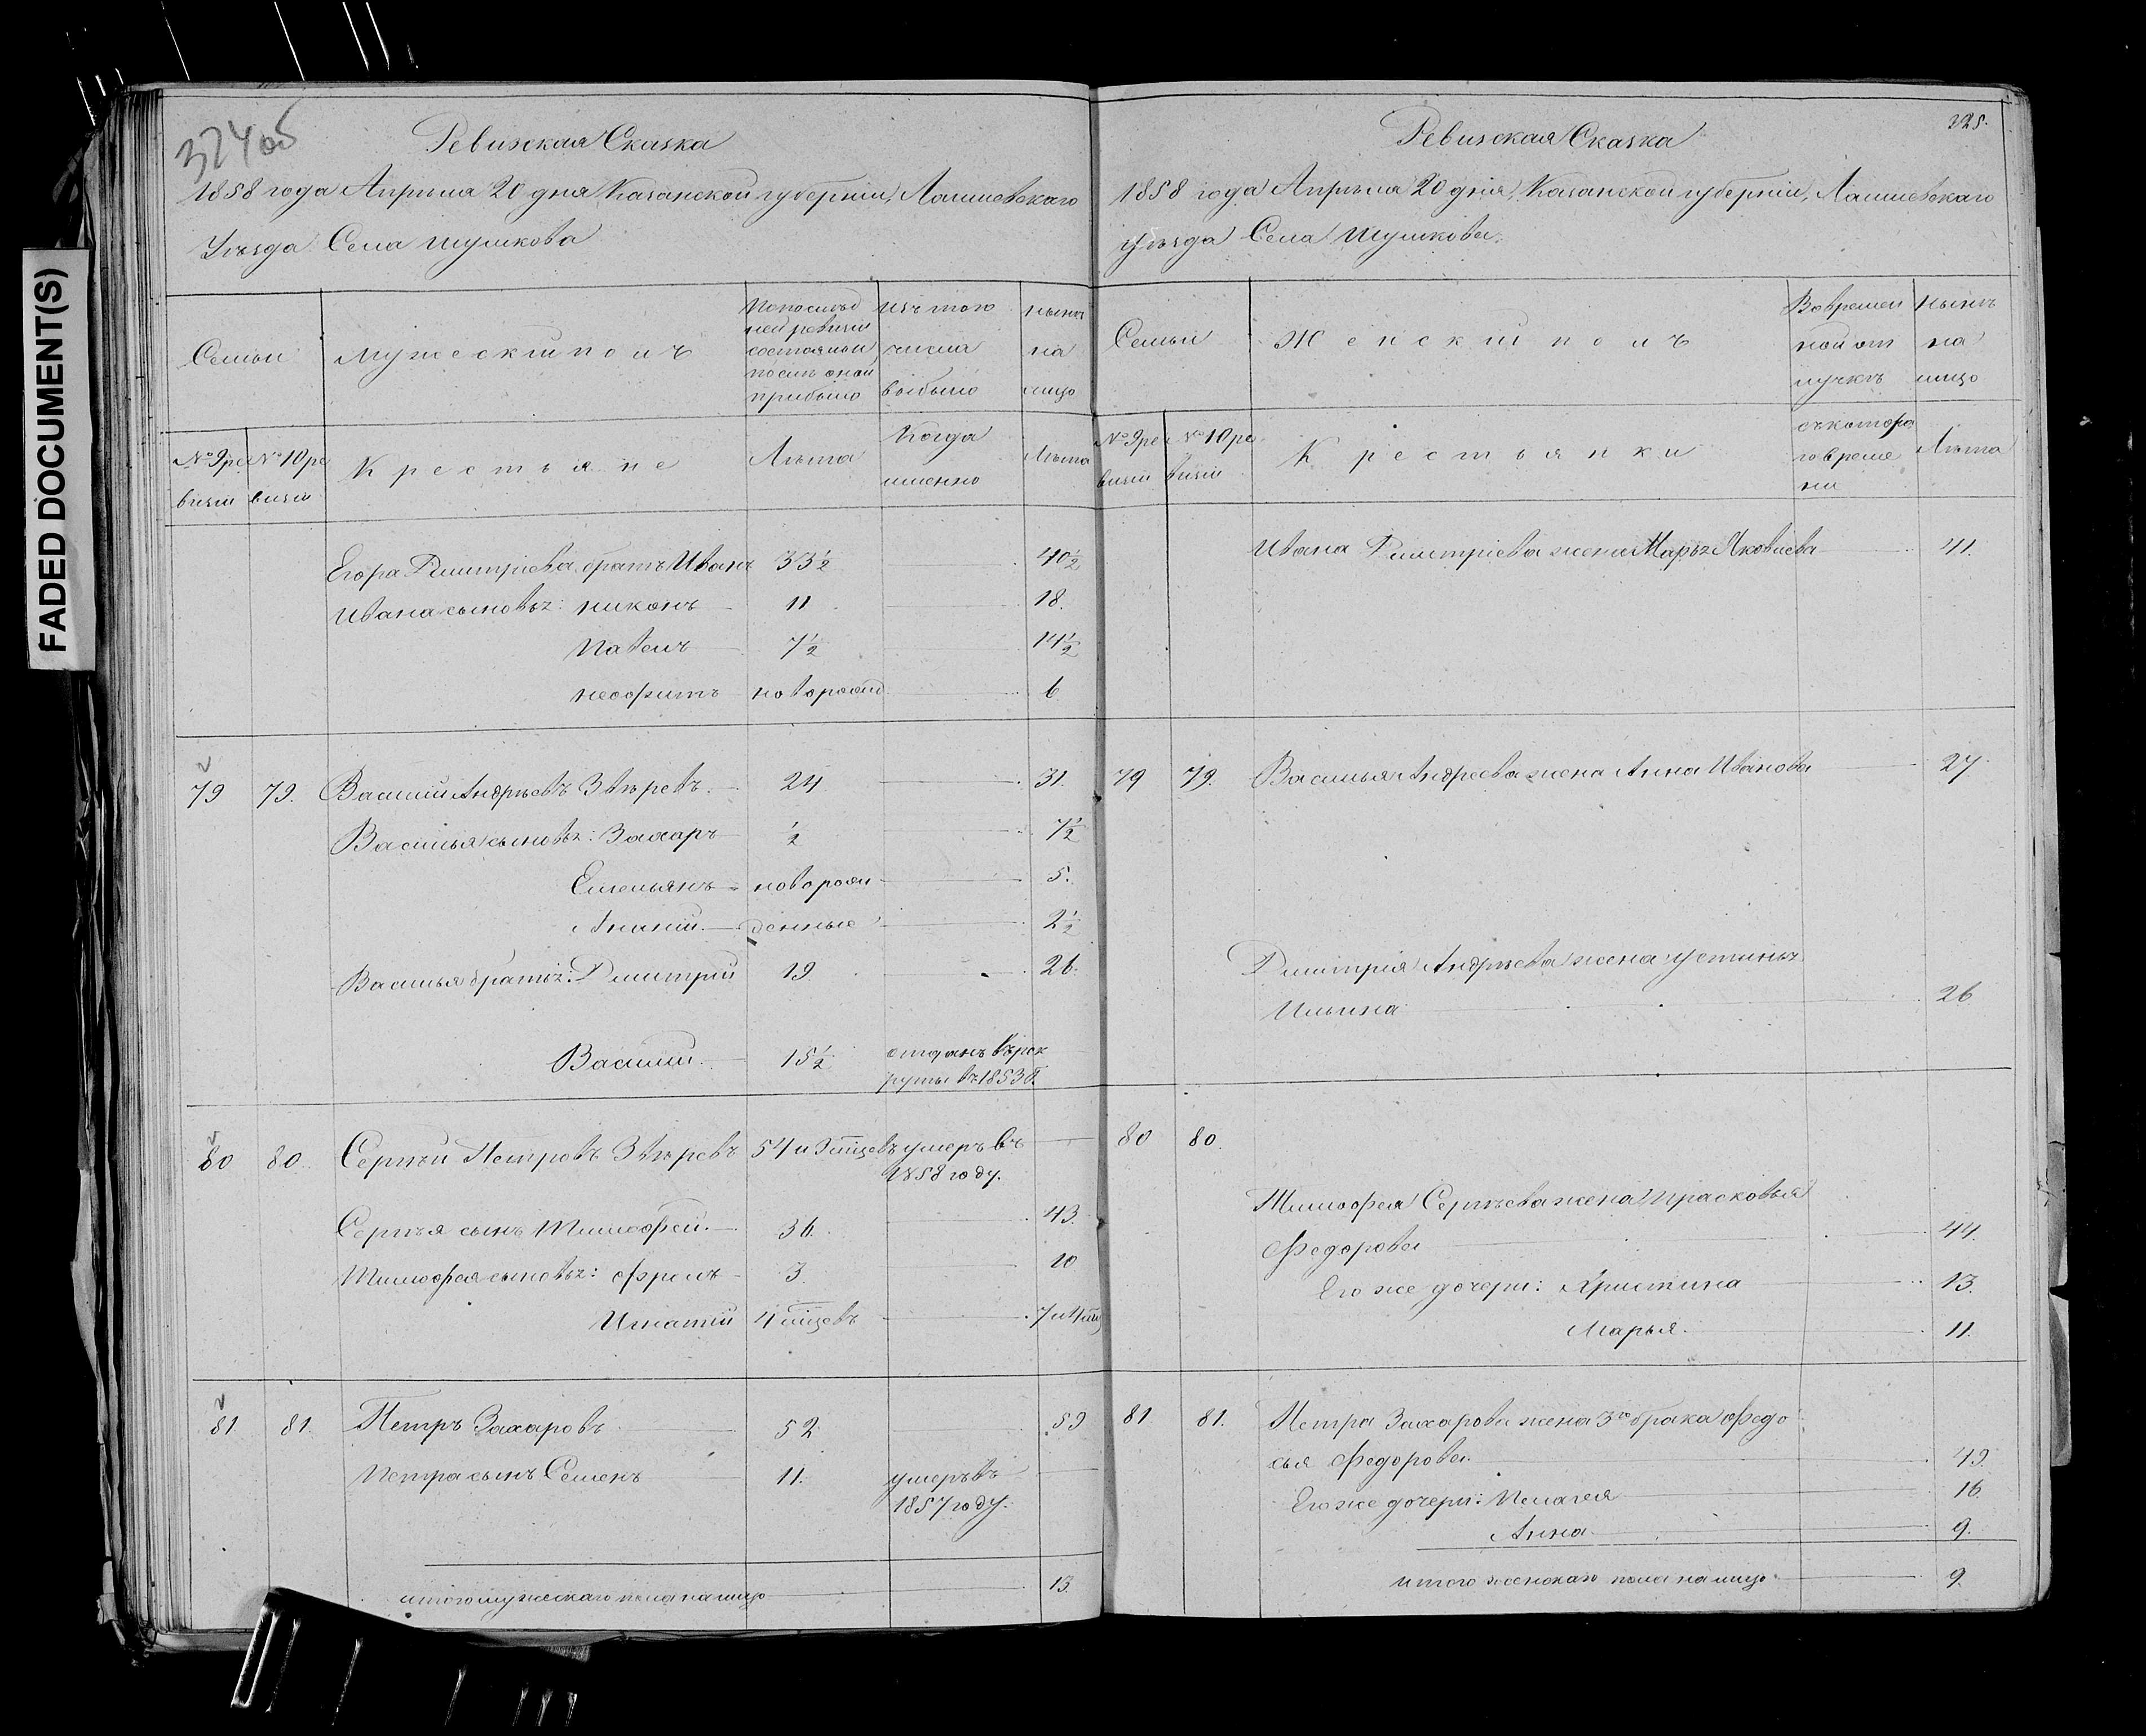 FADED DOCUMENT(S)
324об
Ревизская Сказка
1858 года Апрѣля 20 дня, Казанской губерніи, Лаишевскаго
Уѣзда Села Шумкова
Семьи
Мужескій полъ
По послѣд
ней ревизіи
состояльи
послѣ оной
прибыло
Изъ того
числа
выбыло
Нынѣ
на
лицо
№ 9 ре
визіи
№ 10 ре
визіи
Крестьяне
Лѣта
Когда
именно
Лѣта
Егора Дмитріева братъ Иванъ 33½ 40½
Ивана сыновья: Никонъ 11 18.
Павелъ 7½ 14½
Неофитъ новорожд 6
79 79. Василий Андрѣевъ Звѣревъ. 24 31.
Василья сыновья: Захаръ ½ 7½
Емельянъ новорож 5.
Ананій денные 2½
Василья братья: Дмитрій 19 26.
Василій. 15½ отданъ въ рек
руты въ 1853 г.
80 80. Сергѣй Петровъ Звѣревъ 54 и 3 мцевъ умеръ въ
1858 году.
Сергѣя сынъ Тимофей. 36. 43.
Тимофея сыновья: Фролъ 3. 10
Игнатій 4 мцевъ 7 и 4 мц
81 81. Петръ Захаровъ 52 59
Петра сынъ Семенъ 11. умеръ въ
1857 году.
итого мужескаго пола на лицо 13.
325.
Ревизская Сказка
1858 года Апрѣля 20 дня, Казанской губерніи, Лаишевскаго
уѣзда Села Шумкова.
Семьи
Женскій полъ
Во времен
ной от
лучкѣ
Нынѣ
на
лицо
№ 9 ре
визіи
№ 10 ре
визіи
Крестьянки
съ котора
го време
ни
Лѣта
Ивана Дмитріева жена Марья Яковлева 41.
79 79. Василья Андреева жена Анна Иванова 27
Дмитрія Андрѣева жена Устинья
Ильина 26
80 80.
Тимофея Сергѣева жена Прасковья
Федорова 44.
Его же дочери: Христина 13.
Марья. 11.
81 81. Петра Захарова жена 3го брака Федо
сья Федорова. 49.
Его же дочери: Пелагея 16
Анна 9.
итого женскаго пола на лицо 9.